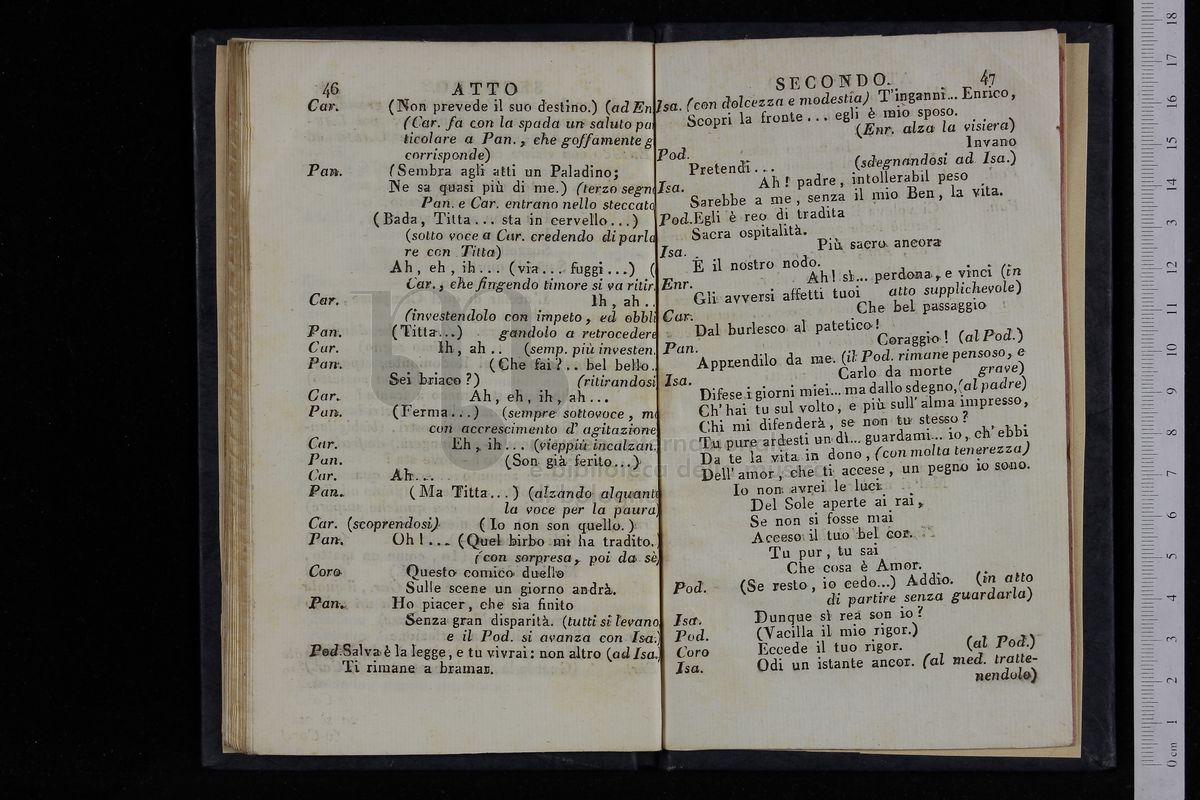 46 ATTO
Car. (Non prevede il suo destino.) (ad En
(Car. fa con la spada un saluto pa
ticolare a Pan., che goffamente g
corrisponde)
Pan. (Sembra agli atti un Paladino;
Ne sa quasi più di me.) (terzo segn
Pan. e Car. entrano nello steccato
(Bada, Titta... sta in cervello...)
(sotto voce a Car. credendo di parla
re con Titta)
Ah, eh, ih... (via... fuggi...) (
Car., che fingendo timore si va ritir.
Car. Ih, ah..
(investendolo con impeto, ed obbli
Pan. (Titta...) gandolo a retrocedere
Car. Ih, ah.. (semp. più investen.
Pan. (Che fai?.. bel bello..
Sei briaco?) (ritirandosi
Car. Ah, eh, ih, ah...
Pan. (Ferma...) (sempre sottovoce, ma
con accrescimento d' agitazione
Car. Eh, ih... (vieppiù incalzan.
Pan. (Son già ferito...)
Car. Ah...
Pan. (Ma Titta...) (alzando alquanto
la voce per la paura)
Car. (scoprendosi) (Io non son quello.)
Pan. Oh!... (Quel birbo mi ha tradito.)
(con sorpresa, poi da sè)
Coro Questo comico duello
Sulle scene un giorno andrà.
Pan. Ho piacer, che sia finito
Senza gran disparità. (tutti si levano
e il Pod. si avanza con Isa.)
Pod. Salva è la legge, e tu vivrai: non altro (ad Isa.)
Ti rimane a bramar.
SECONDO. 47
Isa. (con dolcezza e modestia) T'inganni... Enrico,
Scopri la fronte... egli è mio sposo.
(Enr. alza la visiera)
Pod. Invano
Pretendi... (sdegnandosi ad Isa.)
Isa. Ah! padre, intollerabil peso
Sarebbe a me, senza il mio Ben, la vita.
Pod. Egli è reo di tradita
Sacra ospitalità.
Isa. Più sacro ancora
E il nostro nodo.
Enr. Ah! sì... perdona, e vinci (in
Gli avversi affetti tuoi atto supplichevole)
Car. Che bel passaggio
Dal burlesco al patetico!
Pan. Coraggio! (al Pod.)
Apprendilo da me. (il Pod. rimane pensoso, e
Isa. Carlo da morte grave)
Difese i giorni miei... ma dallo sdegno, (al padre)
Ch' hai tu sul volto, e più sull' alma impresso,
Chi mi difenderà, se non tu stesso?
Tu pure ardesti un dì... guardami... io, ch' ebbi
Da te la vita in dono, (con molta tenerezza)
Dell' amor, che ti accese, un pegno io sono.
Io non avrei le luci
Del Sole aperte ai rai,
Se non si fosse mai
Acceso il tuo bel cor.
Tu pur, tu sai
Che cosa è Amor.
Pod. (Se resto, io cedo...) Addio. (in atto
di partire senza guardarla)
Isa. Dunque sì rea son io?
Pod. (Vacilla il mio rigor.)
Coro Eccede il tuo rigor. (al Pod.)
Isa. Odi un istante ancor. (al med. tratte-
nendolo)